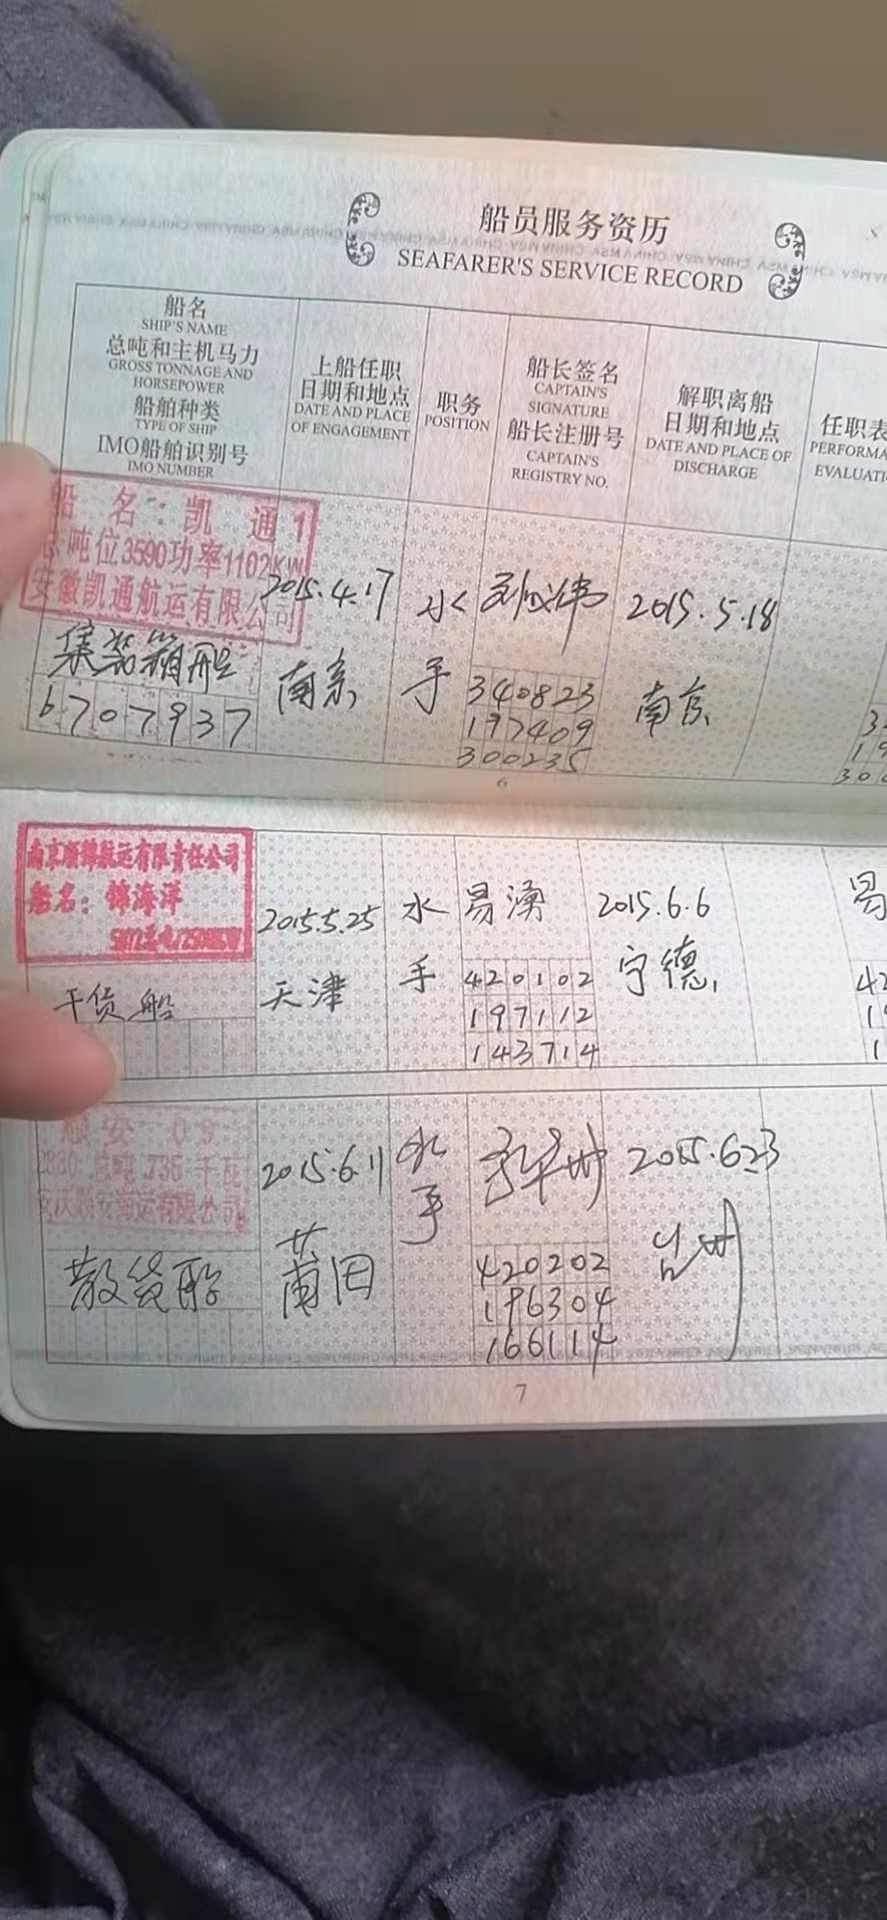 船员服务资历
SEAFARER'S SERVICE RECORD
船名
SHIP'S NAME
总吨和主机马力
GROSS TONNAGE AND
HORSEPOWER
船舶种类
TYPE OF SHIP
IMO船舶识别号
IMO NUMBER
上船任职
日期和地点
DATE AND PLACE
OF ENGAGEMENT
职务
POSITION
船长签名
CAPTAIN'S
SIGNATURE
船长注册号
CAPTAIN'S
REGISTRY NO.
解职离船
日期和地点
DATE AND PLACE OF
DISCHARGE
任职表
PERFORMA
EVALUATI
船名:凯通1
总吨位3590功率1102KW
安徽凯通航运有限公司
集装箱船
6707937
2015.4.17
南京
水
手
340823
197409
300235
2015.5.18
南京
6
南京顺锦航运有限责任公司
船名:锦海洋
干货船
2015.5.25
天津
水
手
易涛
420102
197112
143714
2015.6.6
宁德
易
42
19
1
安 09
2880总吨 735千瓦
海运有限公司
散货船
2015.6.11
莆田
水
手
420202
196304
166114
2015.6.23
台州
7